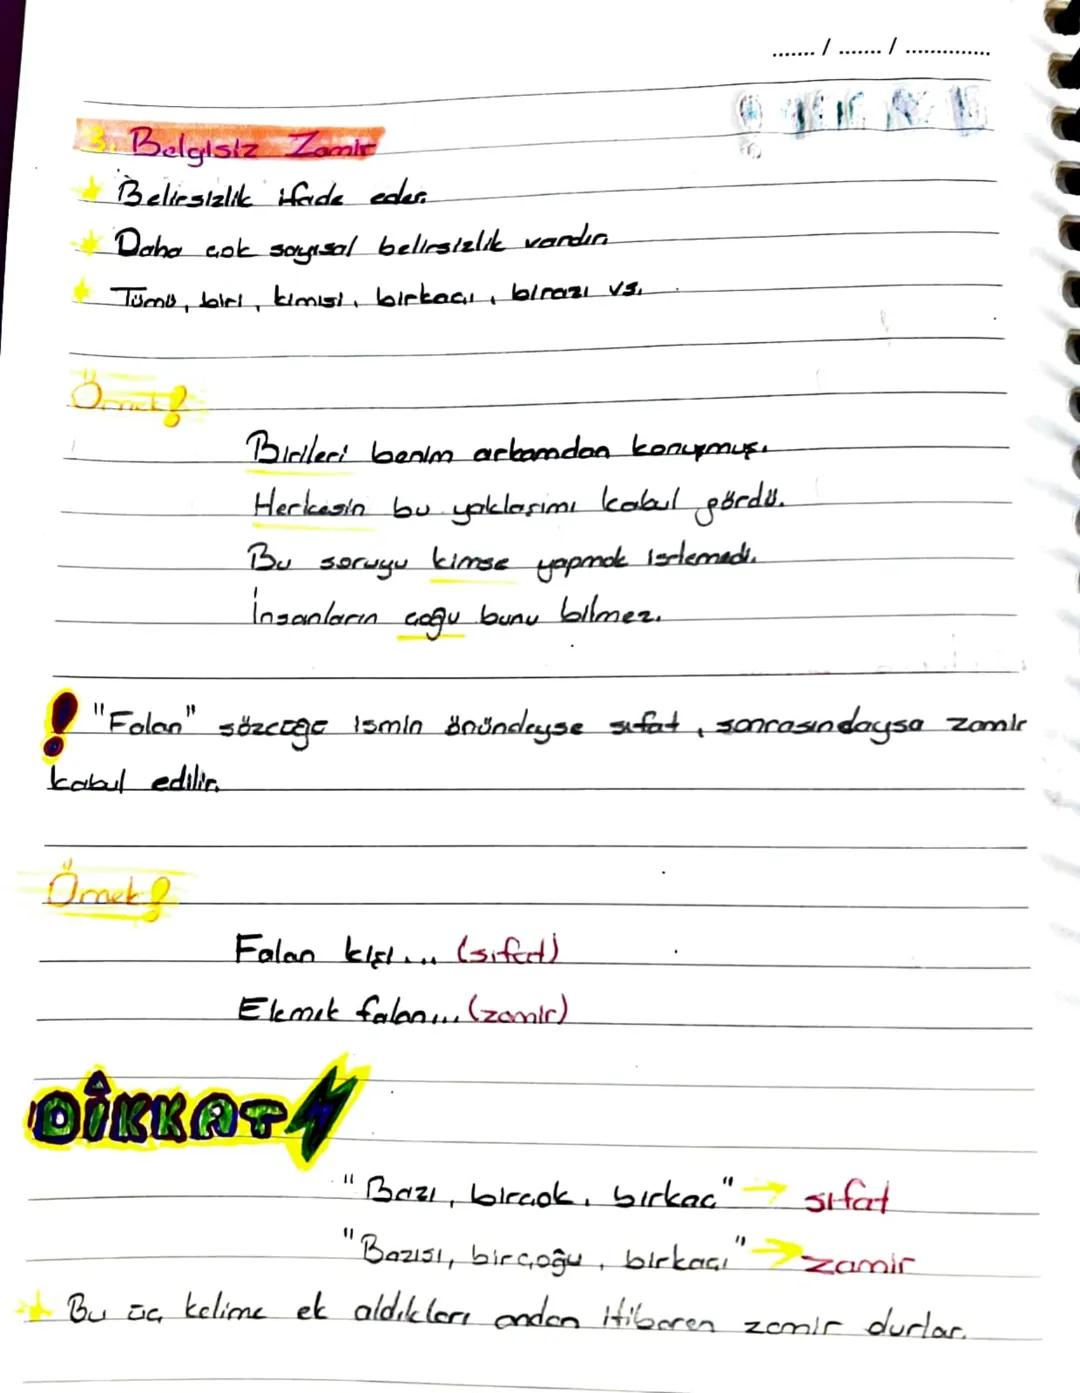 ....... / ....... / ..............
3. Belgisiz Zamir
Belirsizlik ifade eder.
Daha çok sayısal belirsizlik vardır.
Tümü, biri, kimisi, birkaçı, birazı vs.
Örnek!
Birileri benim arkamdan konuşmuş.
Herkesin bu yaklaşımı kabul gördü.
Bu soruyu kimse yapmak istemedi.
İnsanların çoğu bunu bilmez.
! "Falan" sözcüğü ismin önündeyse sıfat, sonrasındaysa zamir
kabul edilir.
Örnek!
Falan kişi... (sıfat)
Ekmek falan... (zamir)
DİKKAT
"Bazı, birçok, birkaç" → sıfat
"Bazısı, birçoğu, birkaçı" → zamir
Bu üç kelime ek aldıkları andan itibaren zamir olurlar.